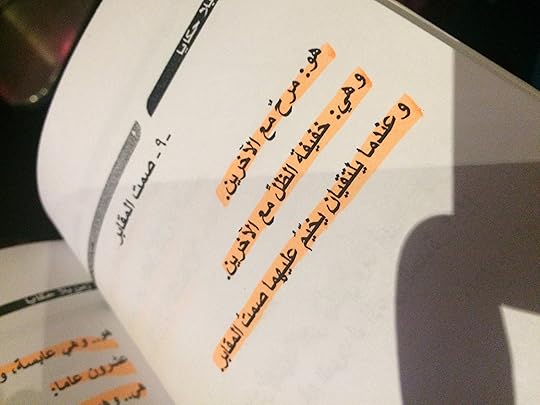 بلا حكايا
-٩- صمت المقابر
هو: مرح مع الآخرين.
وهي: خفيفة الظلّ مع الآخرين.
وعندما يلتقيان يخيّم عليهما صمتُ المقابر.
بلا حكايا
هو.. وهي عابسة، و
عشرون عاماً:
هي.. وهو